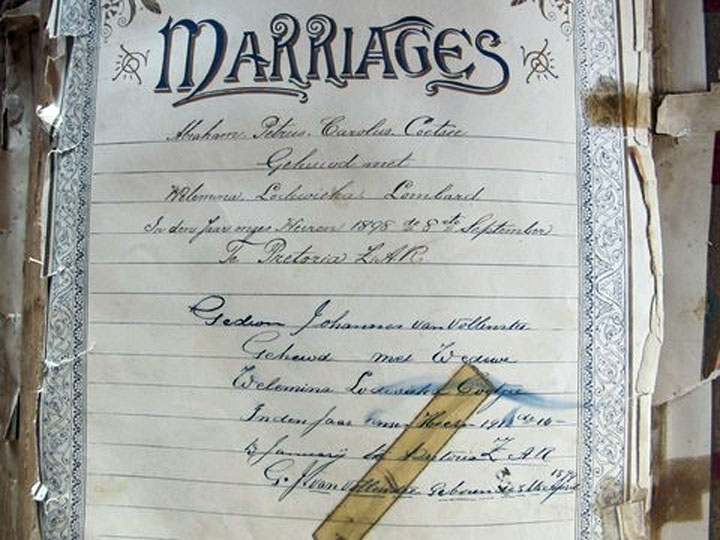 MARRIAGES
Abraham Petrus Carolus Coetsee
Gehuwd met
Wilemina Lodewiska Lombard
In den Jaar onzes Heeren 1898 de 8ste September
Te Pretoria Z.A.R.
Gedeon Johannes van Vollenstee
Gehuwd met Weduwe
Welemina Lodewiska
In den Jaar Heer
January Pretoria Z A R
G. J. van Geboren